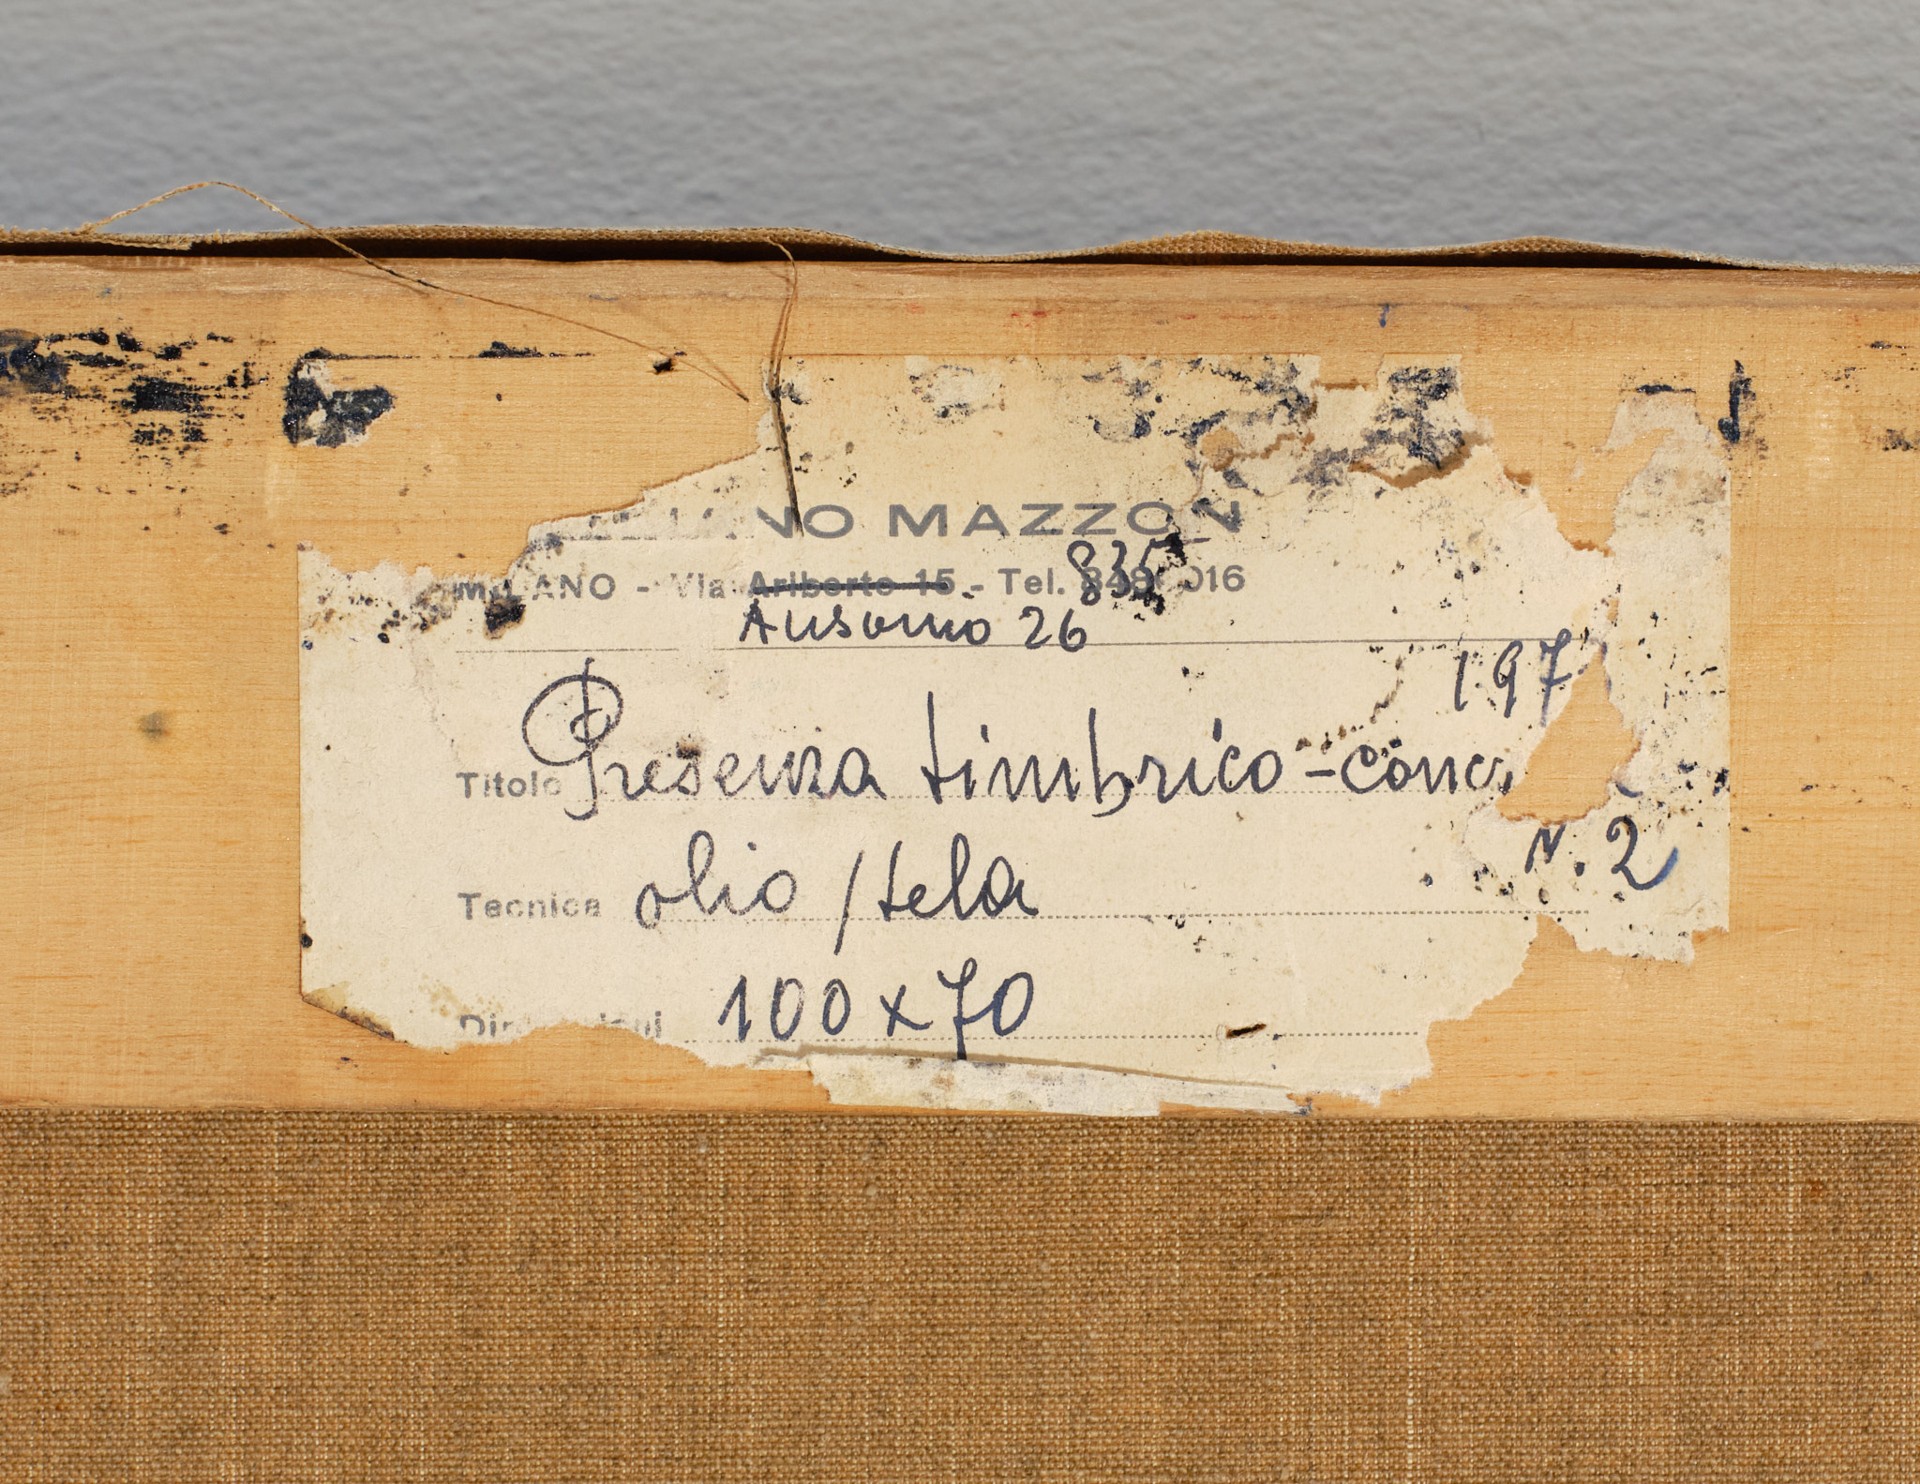 NO MAZZON
MILANO - Via Ariberto 15 - Tel. 835 016
Ausonio 26
197
Titolo Presenza timbrico-conc
N. 2
Tecnica olio / tela
100 x 70